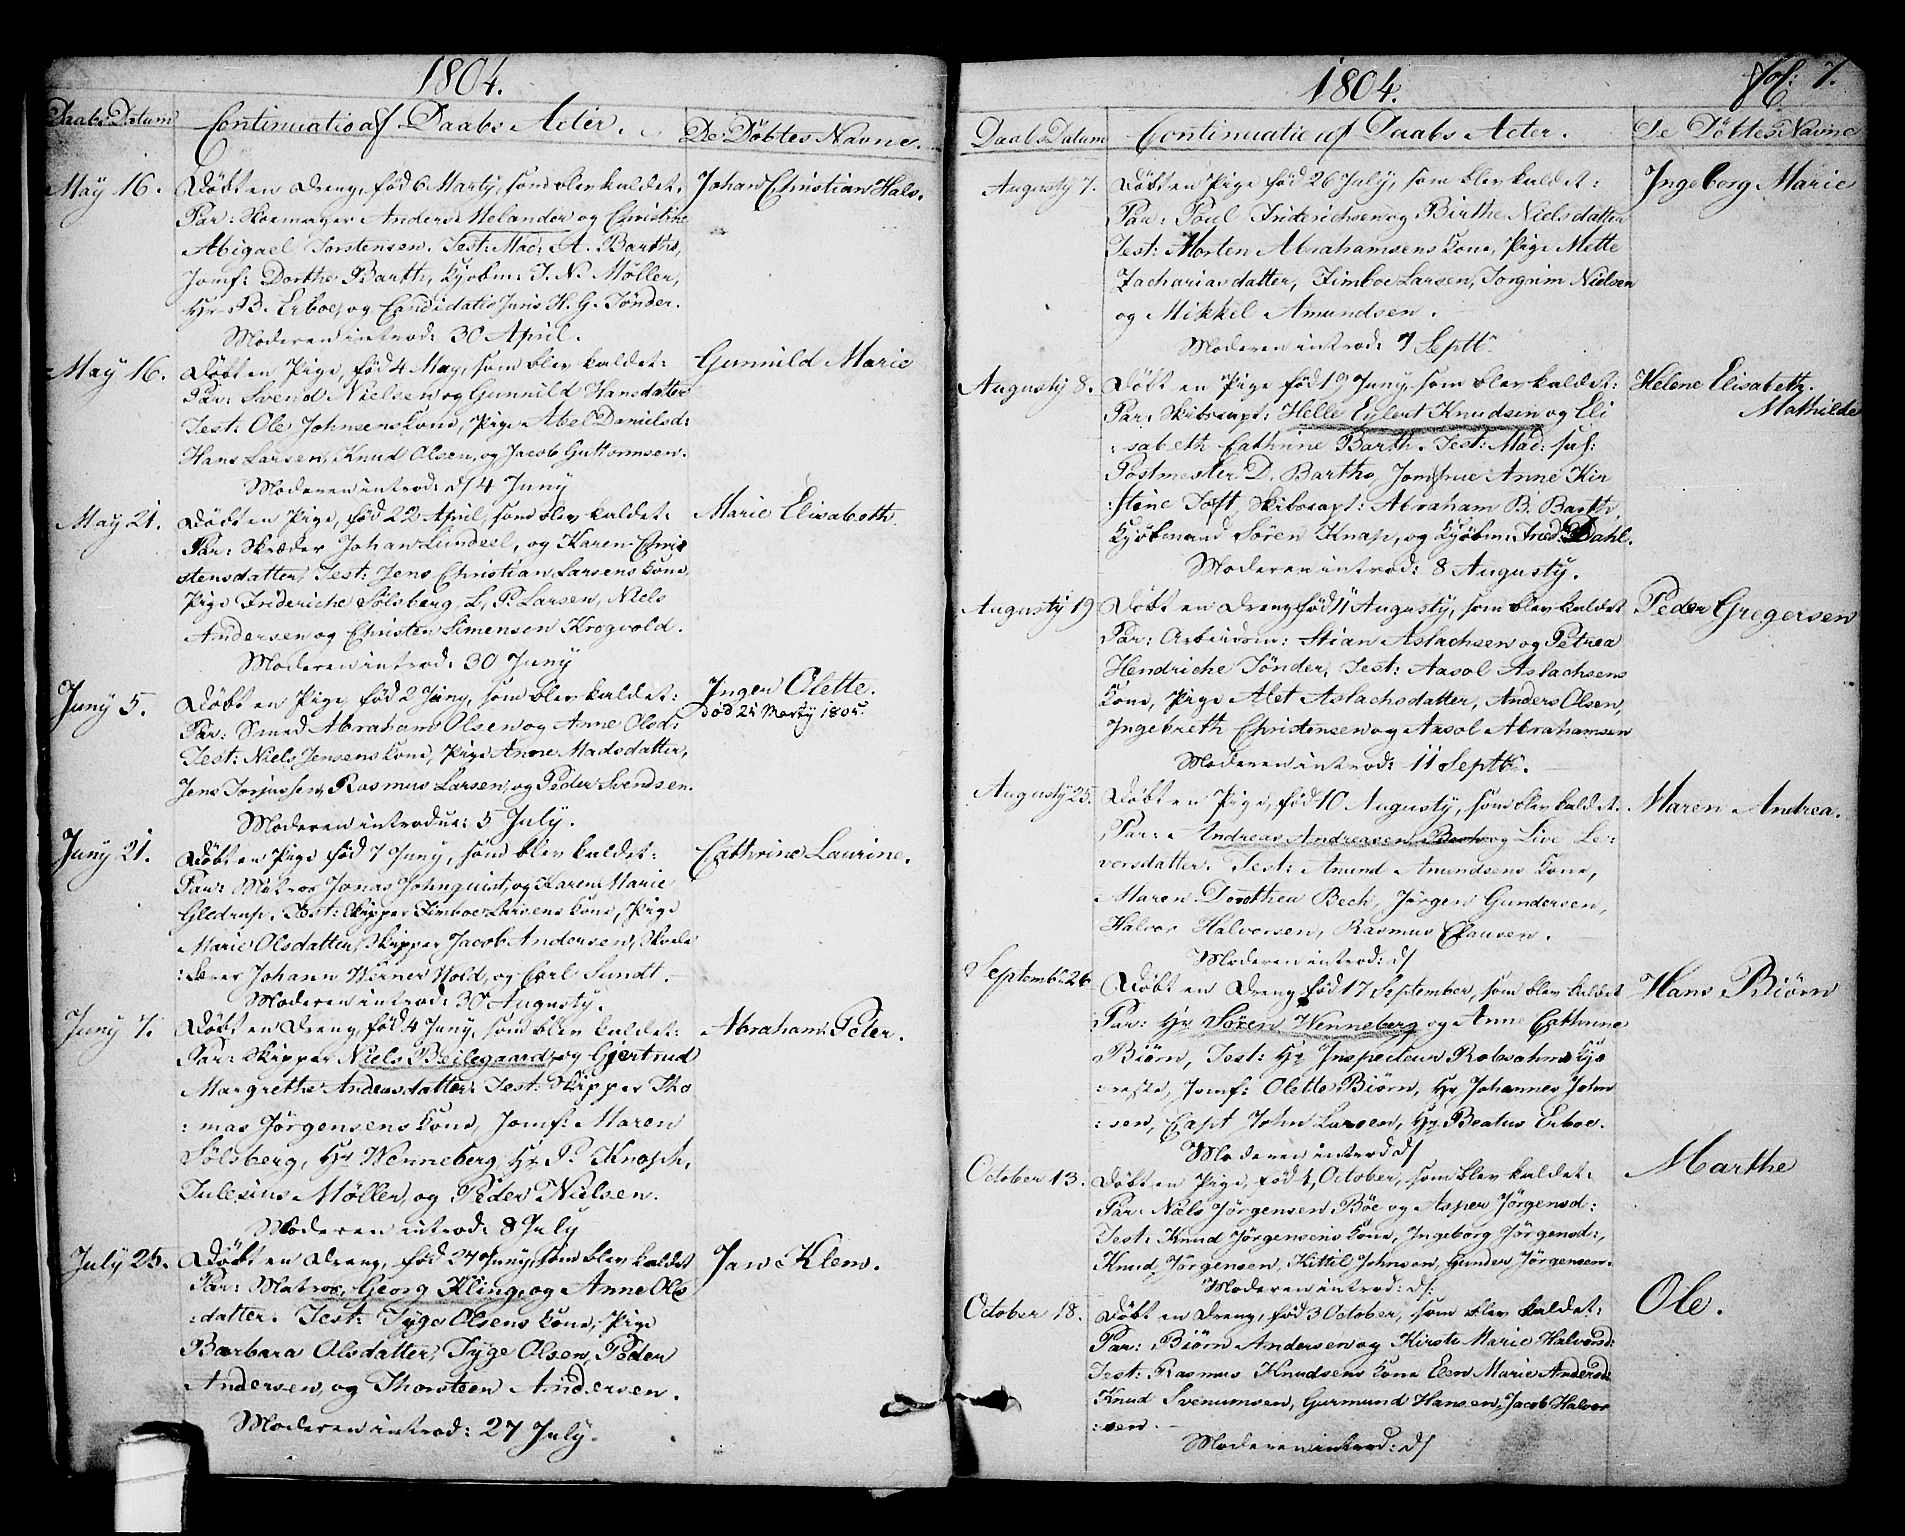 1804.
Daabs Datum
Continuatio af Daabs Acter.
De Döbtes Navne.
May 16.
Döbt en Dreng, föd 6 Marty, som blev kaldet:
Johan Christian Hals.
Par: Skomager Anders Melander og Christine
Abigael Torstensen. Test: Mad: A. Barths,
Jomf: Dorthe Barth, Kjöbm: J. N. Møller,
Hr B. Erboe, og Candidatis Juris H. G. Tönder.
Moderen introd: 30 April.
May 16.
Döbt en Pige, föd 4 May, som blev kaldet:
Gunnild Marie
Par: Svend Nielsen og Gunnild Hansdatter
Test: Ole Johnsens Kone, Pige Abel Danielsd:
Hans Larsen, Knud Olsen, og Jacob Guttormsen.
Moderen introd: d/ 4 Juny
May 21.
Döbt en Pige, föd 22 April, som blev kaldet:
Marie Elisabeth
Par: Skræder Johan Lundeel, og Karen Chri
stensdatter, Test: Jens Christian Larsens Kone,
Pige Friderich Sölsberg, L. P. Larsen, Niels
Andersen og Christen Simensen Krogvold.
Moderen introd: 30 Juny
Juny 5.
Döbt en Pige föd 2 Juny, som blev kaldet:
Inger Olette.
död 21 Marty 1805.
Par: Smed Abraham Olsen og Anne Olsd:
Test: Niels Jensens Kone, Pige Anne Madsdatter,
Jens Torjussen, Rasmus Larsen, og Peder Svendsen.
Moderen introdue: 5 July.
Juny 21.
Döbt en Pige föd 7 Juny, som blev kaldet:
Cathrine Laurine.
Par: Matros Jonas Johnquist, og Karen Marie
Gledrup. Test: Skipper Jimboe Larsens Kone, Pige
Marie Olsdatter, Skipper Jacob Andersen, Skole
:Lærer Johann Werner Wold, og Carl Sundt.
Moderen introd: 30 Augusty.
Juny 7.
Döbt en Dreng, föd 4 Juny, som blev kaldet:
Abraham Peter.
Par: Skipper Niels Beilegaard, og Gjertrud
Margrethe Andersdatter. Test: Skipper Tho
:mas Jörgensens Kone, Jomf: Maren
Sölsberg, Hr Wenneberg, Hr P. Knoph,
Julesius Møller, og Peder Nielsen.
Moderen introd: 8 July
July 25.
Döbt en Dreng, föd 24 Juny, som blev kaldet
Jan Klem.
Par: Matros, Georg Kling, og Anne Ols
:datter. Test: Tyge Olsens Kone, Pige
Barbara Olsdatter, Tyge Olsen, Peder
Andersen, og Thorsteen Andersen.
Moderen introd: 27 July.
1804.
Fol: 7.
Daabs Datum
Continuatio af Daabs Acter.
De Döbtes Navne
Augusty 7.
Döbt en Pige föd 26 July, som blev kaldet:
Ingeborg Marie
Par: Poul Friderichsen og Birthe Nielsdatter
Test: Morten Abrahamsens Kone, Pige Mette
Zachariasdatter, Jimboe Larsen, Torgrim Nielsen
og Mikkel Amundsen.
Moderen introd: 7 Septb
Augusty 8.
Döbt en Pige föd 19 Juny, som blev kaldet:
Helene Elisabeth
Mathilde
Par: Skibscapt: Helle Eylert Knudsen og Eli
:sabeth Cathrine Barth. Test: Mad: sal:
Postmester D. Barths, Jomfrue Anne Kir
:stine Toft, Skibscapt: Abraham B. Barth,
Kjöbmand Sören Knap, og Kjöbm: Fred: Dahl.
Moderen introd: 8 Augusty.
Augusty 19
Döbt en Dreng föd 4 Augusty, som blev kaldet
Peder Gregersen
Par: Arbeidsm: Stian Aslachsen og Petrea
Hendriche Tönder, Test: Aasol Aslachsens
Kone, Pige Alet Aslachsdatter, Anders Olsen,
Ingebreth Christensen og Aasol Abrahamsen
Moderen introd: 11 Septb.
Augusty 25.
Döbt en Pige, föd 10 Augusty, som blev kaldet.
Maren Andrea.
Par: Andreas Andreasen Bech og Live Le-
versdatter. Test: Amund Amundsens Kone,
Maren Dorothea Bech, Jörgen Gundersen,
Halvor Halvorsen, Rasmus Clausen.
Moderen introd: d/
Septembr 26
Döbt en Dreng föd 17 September, som blev kaldet
Hans Biörn
Par: Hr Sören Wenneberg og Anne Cathrine
Biörn, Test: Hr Inspecteur Robsahms Kjæ
:reste, Jomf: Olette Biörn, Hr Johannes John
:sen, Capt John Larsen, Hr Beatus Erboe.
Moderen introd d/
October 13.
Döbt en Pige, föd 1 October, som blev kaldet:
Marthe
Par: Niels Jörgensen Böe og Asper Jörgensd:
Test: Knud Jörgensens Kone, Ingeborg Jörgensd:,
Knud Jörgensen, Kittil Johnsen, Gunder Jörgensen.
Moderen introd: d/
October 18.
Döbt en Dreng, föd 3 October, som blev kaldet:
Ole.
Par: Biörn Andersen og Kirsti Marie Halvorsd:
Test: Rasmus Knudsens Kone Elen Marie Andersd:
Knud Svenumsen, Gurmund Hansen, Jacob Halvor
:sen.
Moderen introd: d/